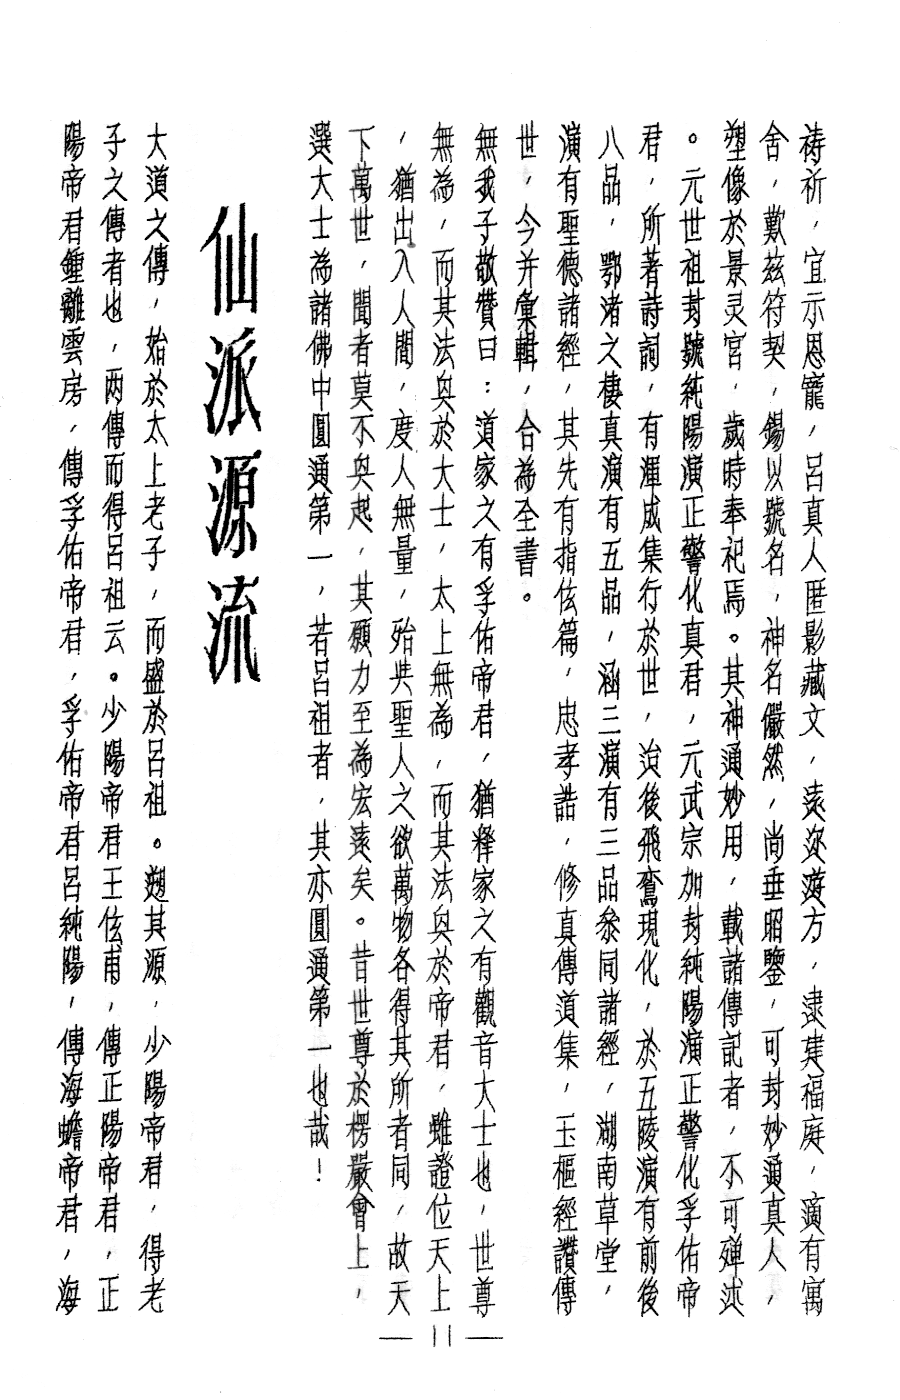 禱祈，宜示恩寵，呂真人匿影藏文，遠迩遊方，逮建福庭，適有寓
舍，歎茲符契，錫以號名，神名儼然，尚垂昭鑒，可封妙通真人，
塑像於景灵宮，歲時奉祀焉。其神通妙用，載諸傳記者，不可殫述
。元世祖封號純陽演正警化真君，元武宗加封純陽演正警化孚佑帝
君，所著詩詞，有渾成集行於世，迨後飛鸞現化，於五陵演有前後
八品，鄂渚之棲真演有五品，涵三演有三品叅同諸經，湖南草堂，
演有聖德諸經，其先有指伭篇，忠孝誥，修真傳道集，玉樞經讚傳
世，今并彙輯，合為全書。
無我子敬贊曰：道家之有孚佑帝君，猶釋家之有觀音大士也，世尊
無為，而其法與於大士，太上無為，而其法與於帝君，雖證位天上
，猶出入人間，度人無量，殆與聖人之欲萬物各得其所者同，故天
下萬世，聞者莫不與起，其願力至為宏遠矣。昔世尊於楞嚴會上，
選大士為諸佛中圓通第一，若呂祖者，其亦圓通第一也哉！
仙派源流
大道之傳，始於太上老子，而盛於呂祖。遡其源，少陽帝君，得老
子之傳者也，両傳而得呂祖云。少陽帝君王伭甫，傳正陽帝君，正
陽帝君鍾離雲房，傳孚佑帝君，孚佑帝君呂純陽，傳海蟾帝君，海
— 11 —